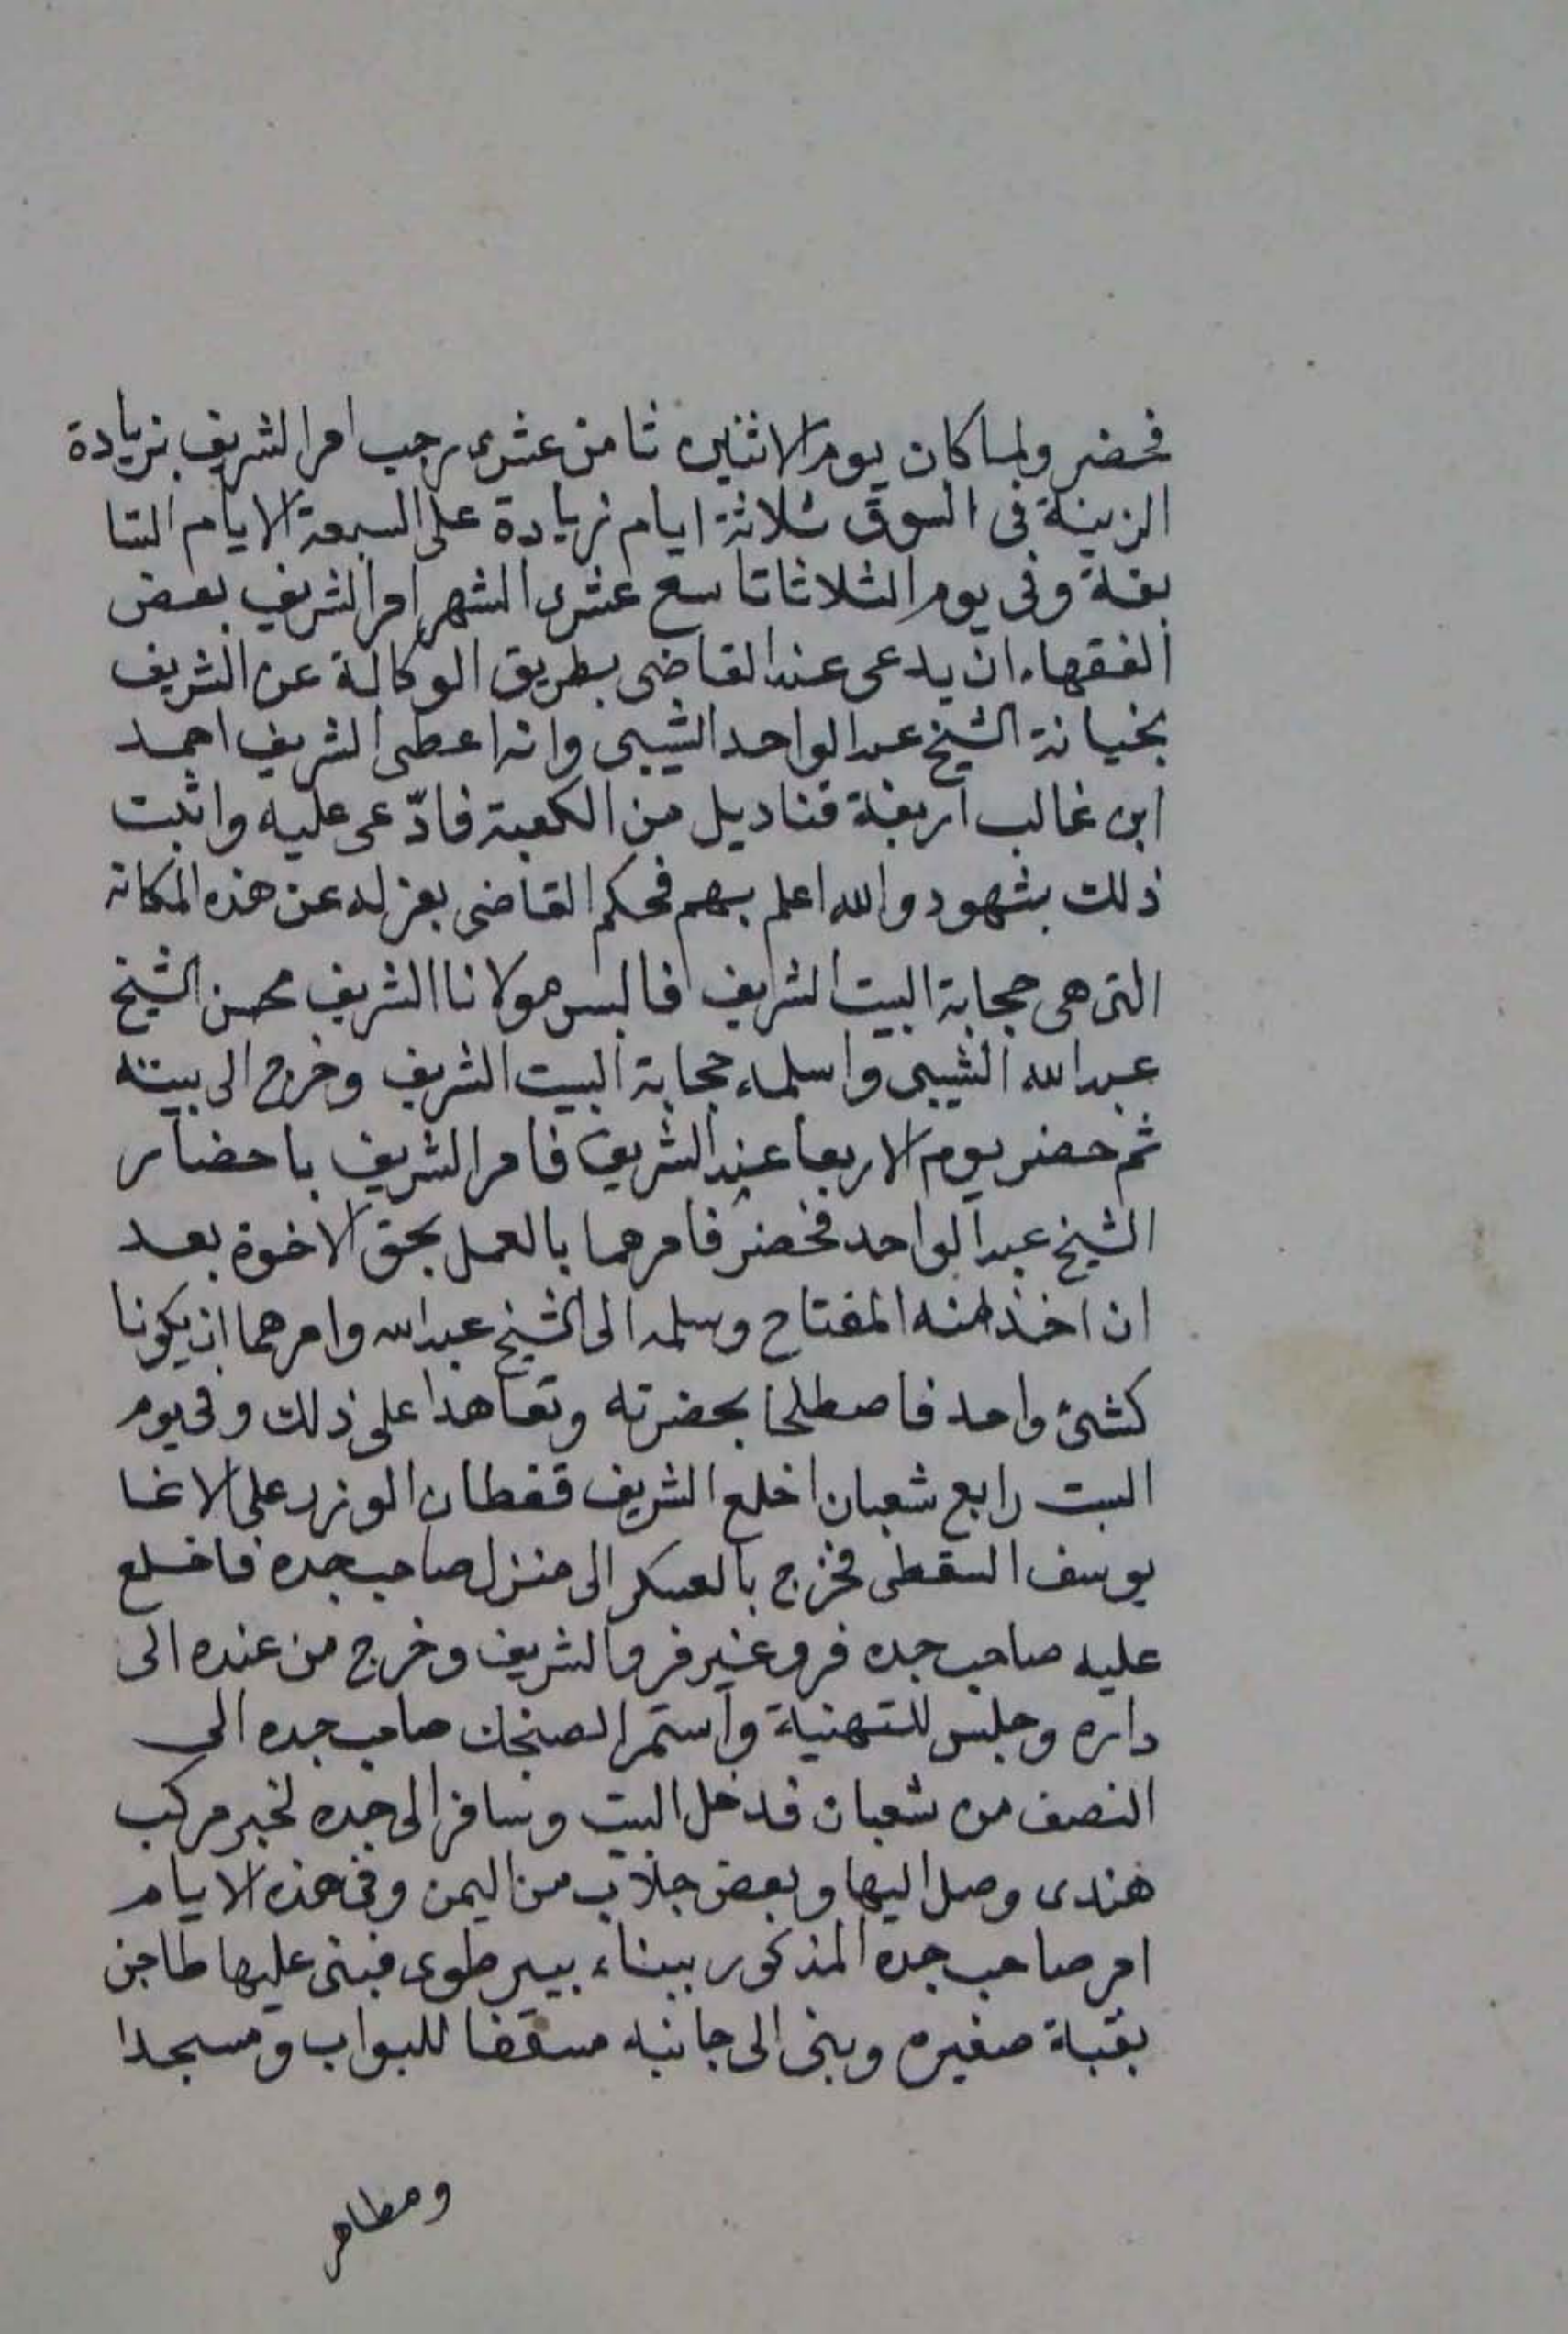 فحضر ولما كان يوم الاثنين ثامن عشرى رجب امر الشريف بزيادة
الزينة فى السوق ثلاثة ايام زيادة على السبعة الايام التا
بقة وفى يوم الثلاثا تاسع عشرى الشهر امر الشريف بعض
الفقهاء ان يدعى عند القاضى بطريق الوكالة عن الشريف
بخيانة الشيخ عبد الواحد الشيبى وانه اعطى الشريف احمد
ابن غالب اربعة قناديل من الكعبة فادّعى عليه واثبت
ذلك بشهود والله اعلم بهم فحكم القاضى بعزله عن هذه المكانة
التى هى حجابة البيت الشريف فالبس مولانا الشريف محسن الشيخ
عبد الله الشيبى واسلمه حجابة البيت الشريف وخرج الى بيته
ثم حضر يوم الاربعا عند الشريف فامر الشريف باحضار
الشيخ عبد الواحد فحضر فامرهما بالعمل بحق الاخوة بعد
ان اخذ منه المفتاح وسلمه الى الشيخ عبد الله وامرهما ان يكونا
كشئ واحد فاصطلحا بحضرته وتعاهدا على ذلك وفى يوم
السبت رابع شعبان اخلع الشريف قفطان الوزر على الاغا
يوسف السقطى فخرج بالعسكر الى منزل صاحب جده فاخلع
عليه صاحب جده فرو غير فرو الشريف وخرج من عنده الى
داره وجلس للتهنية واستمر الصنجك صاحب جده الى
النصف من شعبان فدخل البيت وسافر الى جده لخبر مركب
هندى وصل اليها وبعض جلاب من اليمن وفى هذه الايام
امر صاحب جدة المذكور ببناء بير طوى فبنى عليها طاجن
بقبة صغيره وبنى الى جانبه مسقفا للبواب ومسجدا
ومطاهر